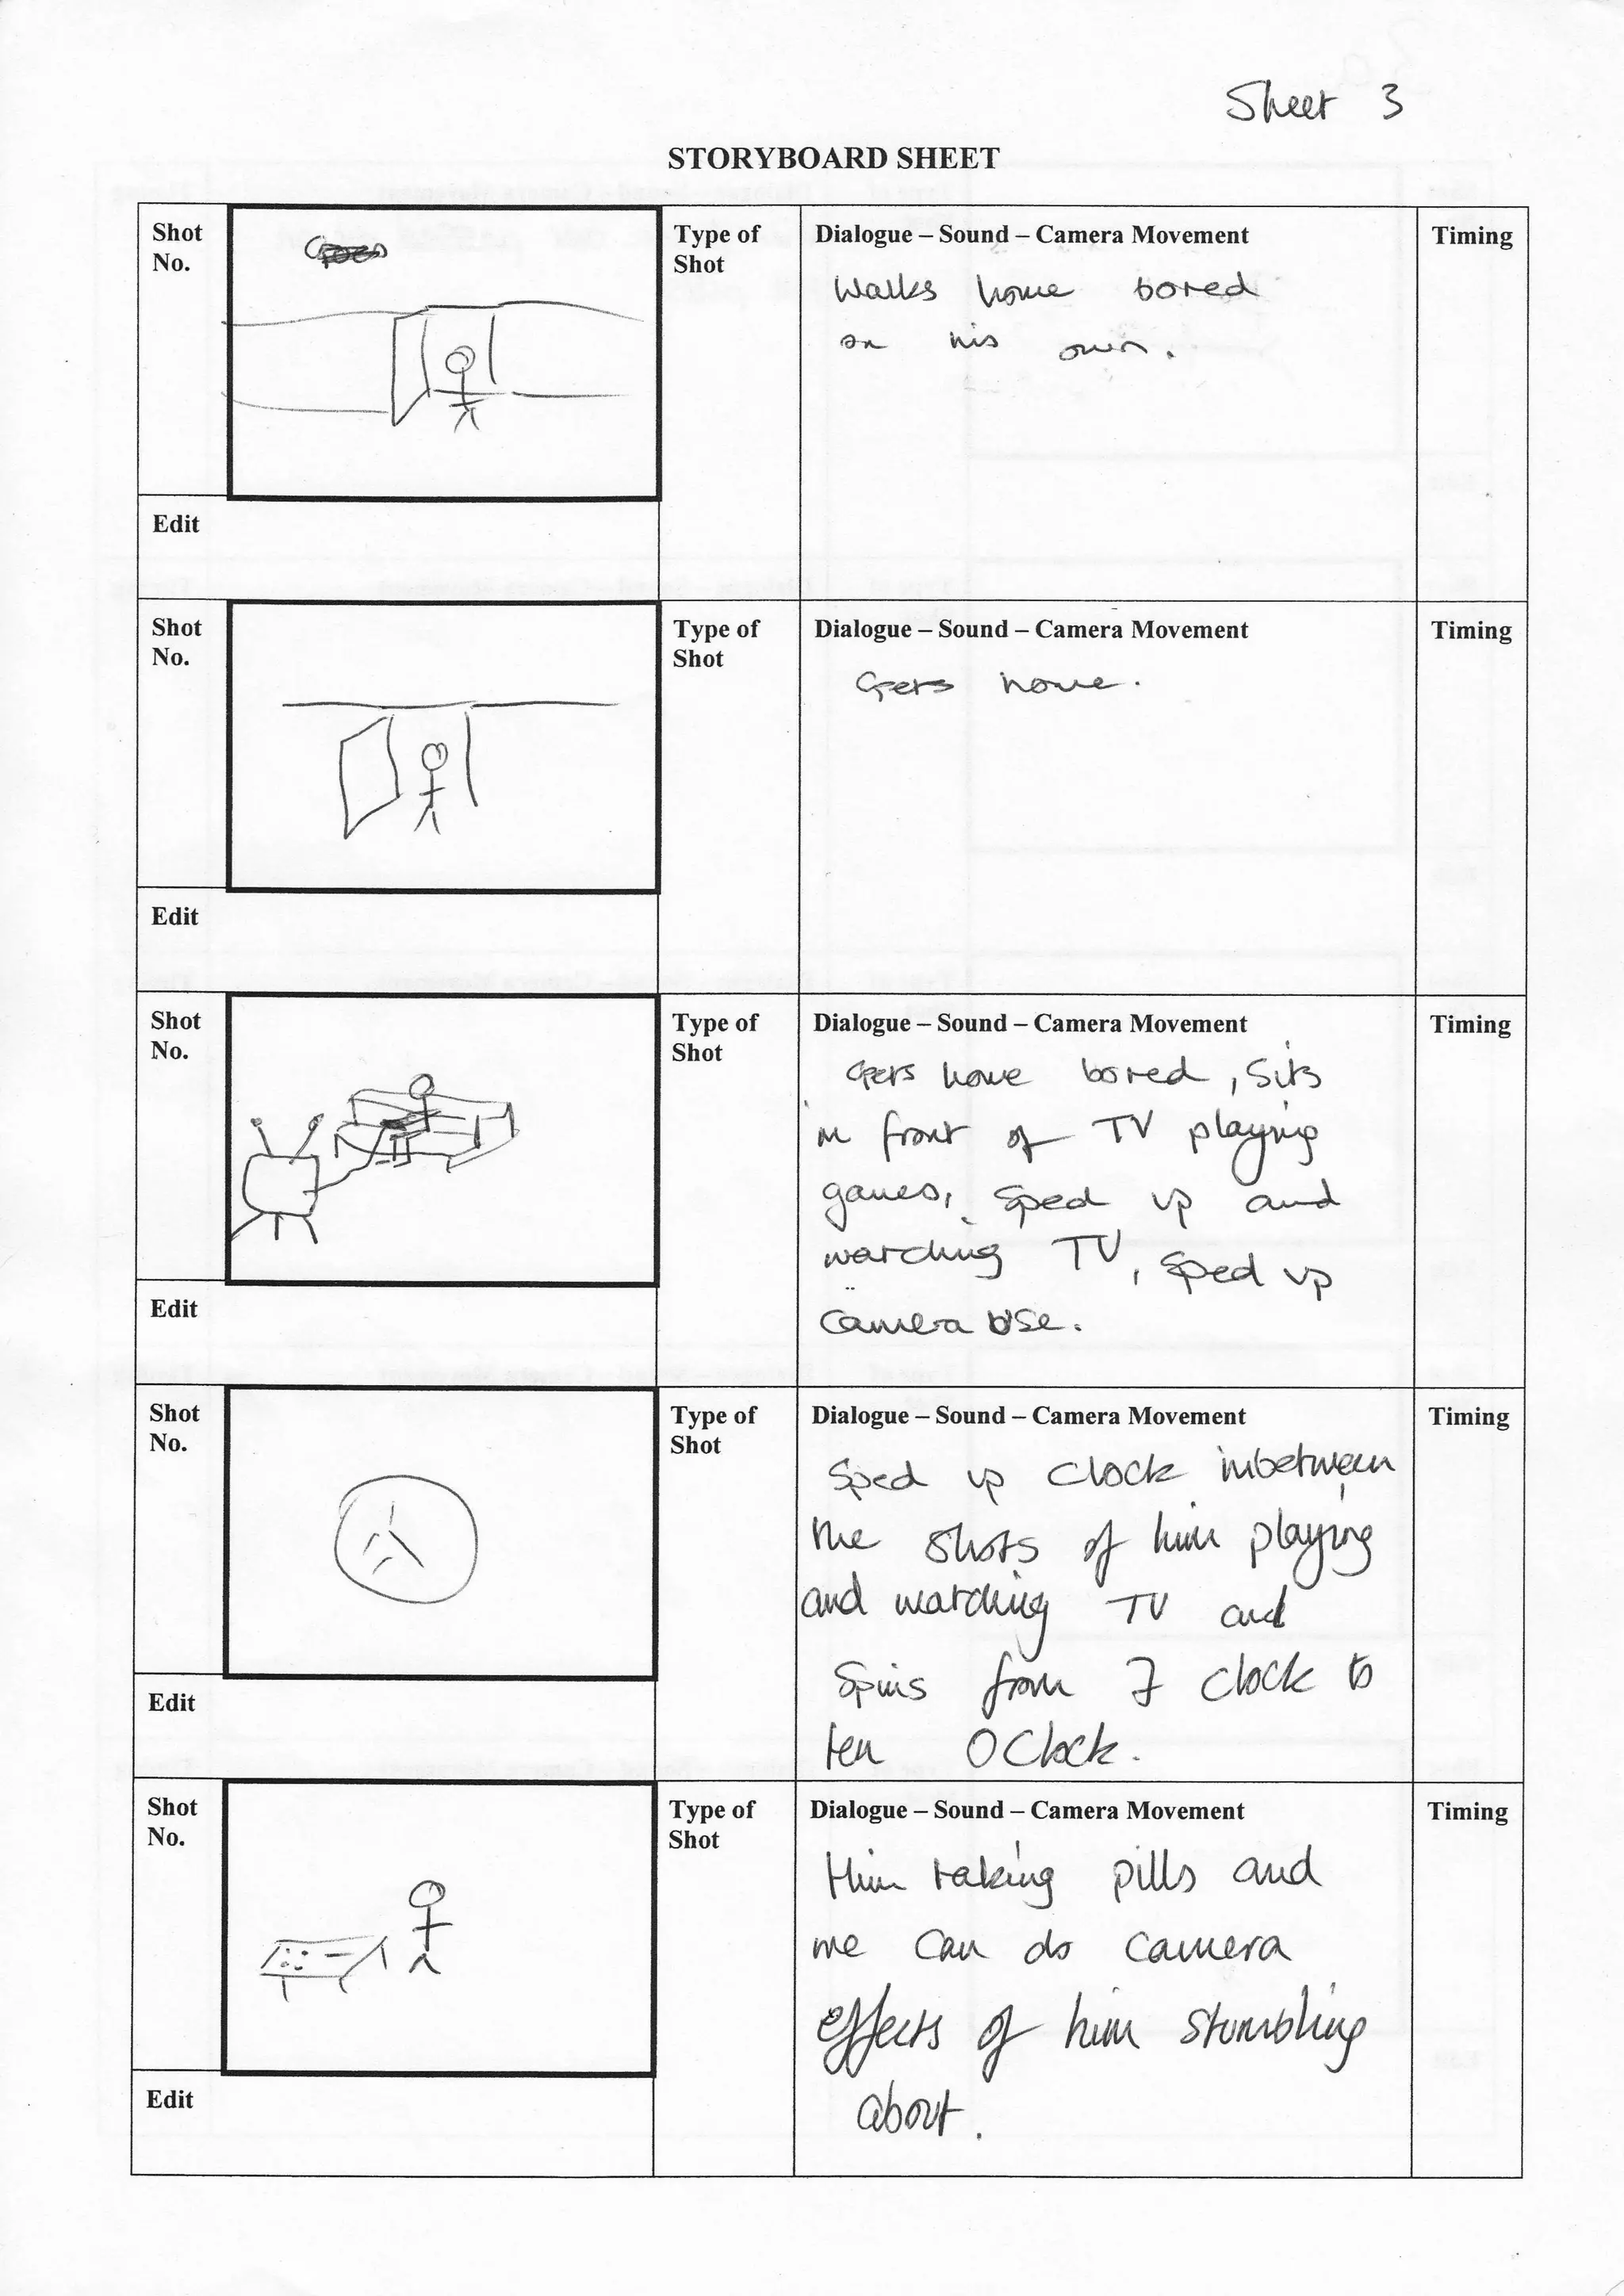 Sheet 3
STORYBOARD SHEET
Shot
No.
Type of
Shot
Dialogue – Sound – Camera Movement
Timing
Walks home bored
on his own.
Edit
Shot
No.
Type of
Shot
Dialogue – Sound – Camera Movement
Timing
Gets home.
Edit
Shot
No.
Type of
Shot
Dialogue – Sound – Camera Movement
Timing
Gets home bored, Sits
in front of TV playing
games, Sped up and
watching TV, Sped up
Camera use.
Edit
Shot
No.
Type of
Shot
Dialogue – Sound – Camera Movement
Timing
Sped up Clock inbetween
the shots of him playing
and watching TV and
Spins from 7 clock to
ten O Clock.
Edit
Shot
No.
Type of
Shot
Dialogue – Sound – Camera Movement
Timing
Him taking pills and
we can do camera
effects of him stumbling
about.
Edit